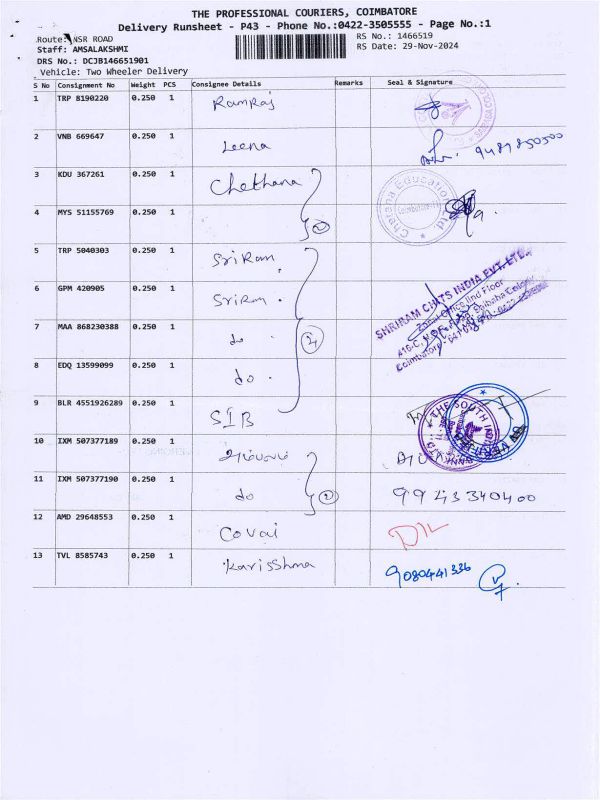 THE PROFESSIONAL COURIERS, COIMBATORE
Delivery Runsheet - P43 - Phone No.:0422-3505555 - Page No.:1
Route: NSR ROAD
RS No.: 1466519
Staff: AMSALAKSHMI
RS Date: 29-Nov-2024
DRS No.: DCJB146651901
Vehicle: Two Wheeler Delivery
S No Consignment No Weight PCS Consignee Details Remarks Seal & Signature
1 TRP 8190220 0.250 1 Ramraj
2 VNB 669647 0.250 1 Leena
3 KDU 367261 0.250 1 Chethana
Chetana Education Ltd.
Coimbatore
4 MYS 51155769 0.250 1
5 TRP 5040303 0.250 1 SriRam
6 GPM 420905 0.250 1 SriRam
SHRIRAM CHITS INDIA PVT. LTD.
Zonal Office, IInd Floor
7 MAA 868230388 0.250 1 do
8 EDQ 13599099 0.250 1 do
9 BLR 4551926289 0.250 1 SIB
THE SOUTH IND
10 IXM 507377189 0.250 1
11 IXM 507377190 0.250 1 do 9943340400
12 AMD 29648553 0.250 1 Covai
13 TVL 8585743 0.250 1 Karisshma 9080441336